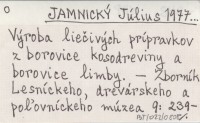 o JAMNICKÝ Július 1977...
Výroba liečivých prípravkov
z borovice kosodreviny a
borovice limby. — Zborník
Lesníckeho, drevárskeho a
poľovníckeho múzea 9: 239-